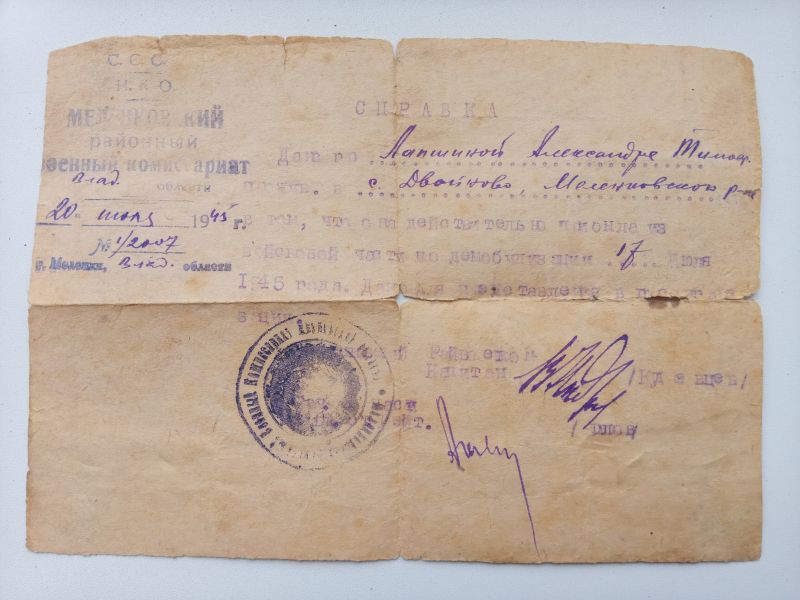 С.С.С.
Н.К.О.
МЕЛЕНКОВСКИЙ
районный
военный комиссариат
Влад. области
20 июля 1945 г.
№ 1/2007
г. Меленки, Влад. области
СПРАВКА
Дана Лапшиной Александре Тимоф.
с. Двойново, Меленковского р-на
в том, что она действительно прибыла из
войсковой части по демобилизации 17 июля
1945 года. Дана для предоставления в
Райвоенком
Капитан /Кудавцев/
части